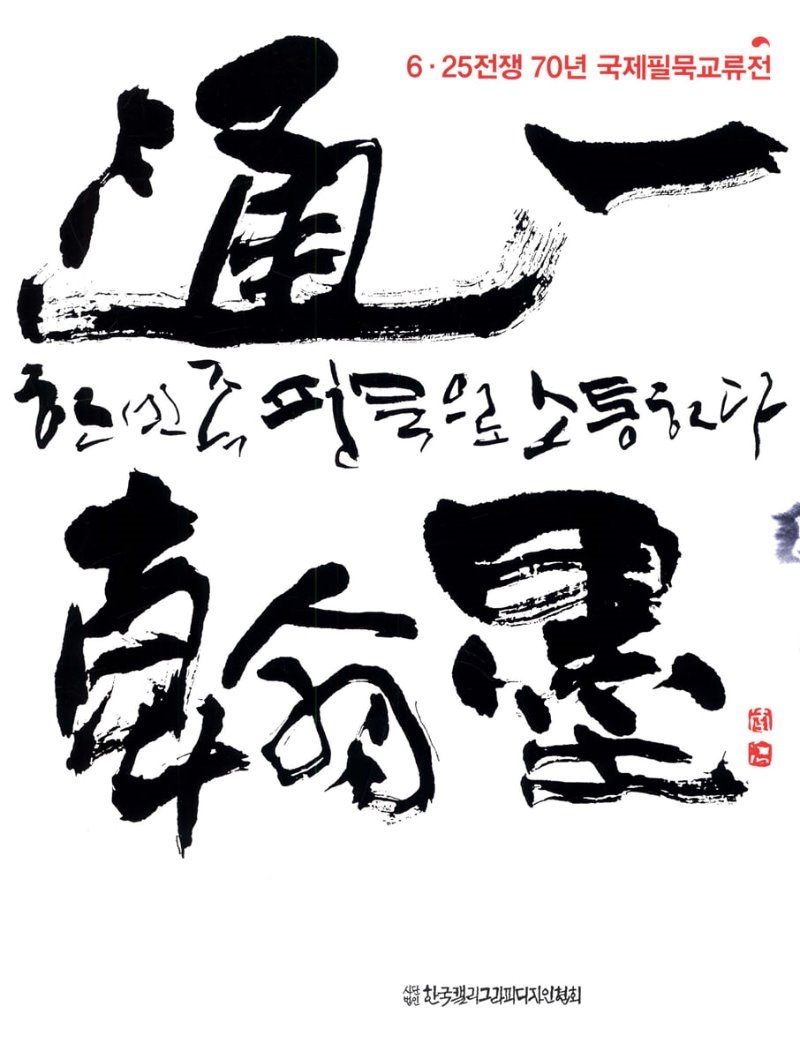 6·25전쟁 70년 국제필묵교류전
通一
한민족 필묵으로 소통하다
翰墨
사단법인 한국캘리그라피디자인협회